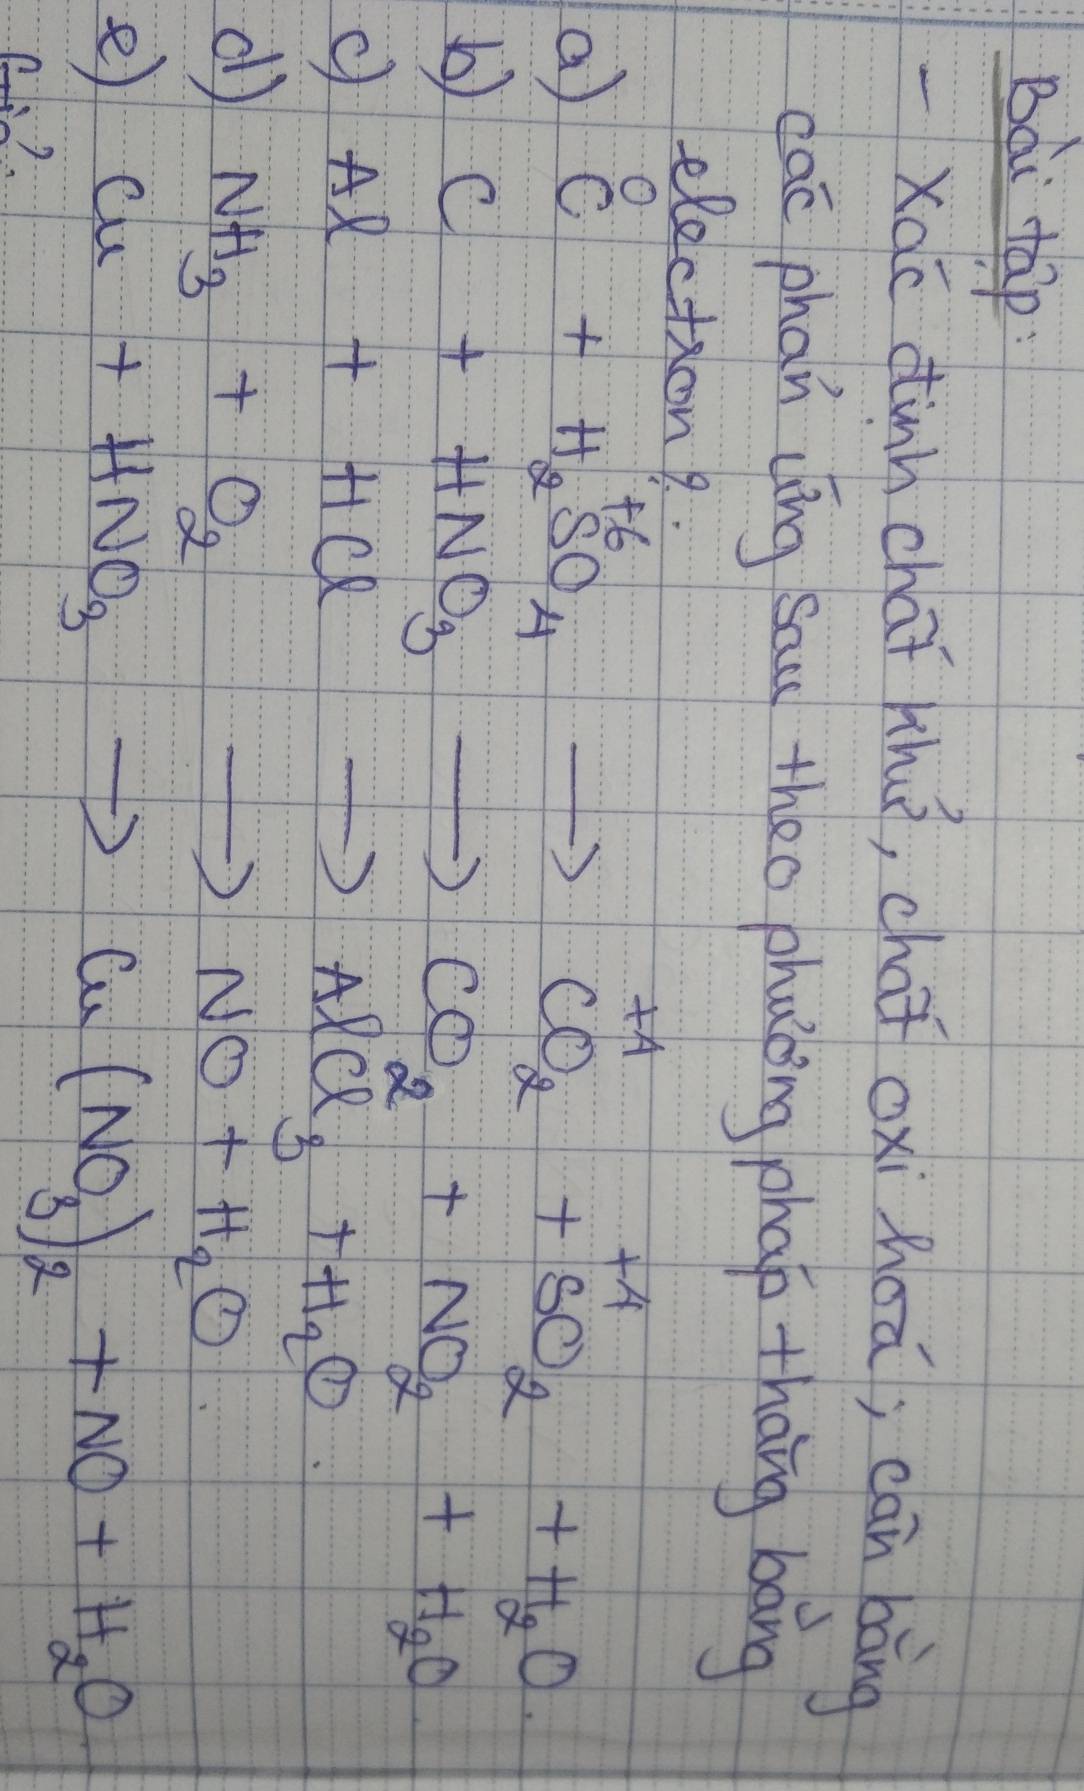 Bài tập:
- Xác định chất khử, chất oxi hoá, cân bằng
các phản ứng sau theo phương pháp thăng bằng
electron?
0 +6 +4 +4
a) C + H₂SO₄ → CO₂ + SO₂ + H₂O.
b) C + HNO₃ → CO₂ + NO₂ + H₂O.
c) Al + HCl → AlCl₃ + H₂O.
d) NH₃ + O₂ → NO + H₂O.
e) Cu + HNO₃ → Cu(NO₃)₂ + NO + H₂O